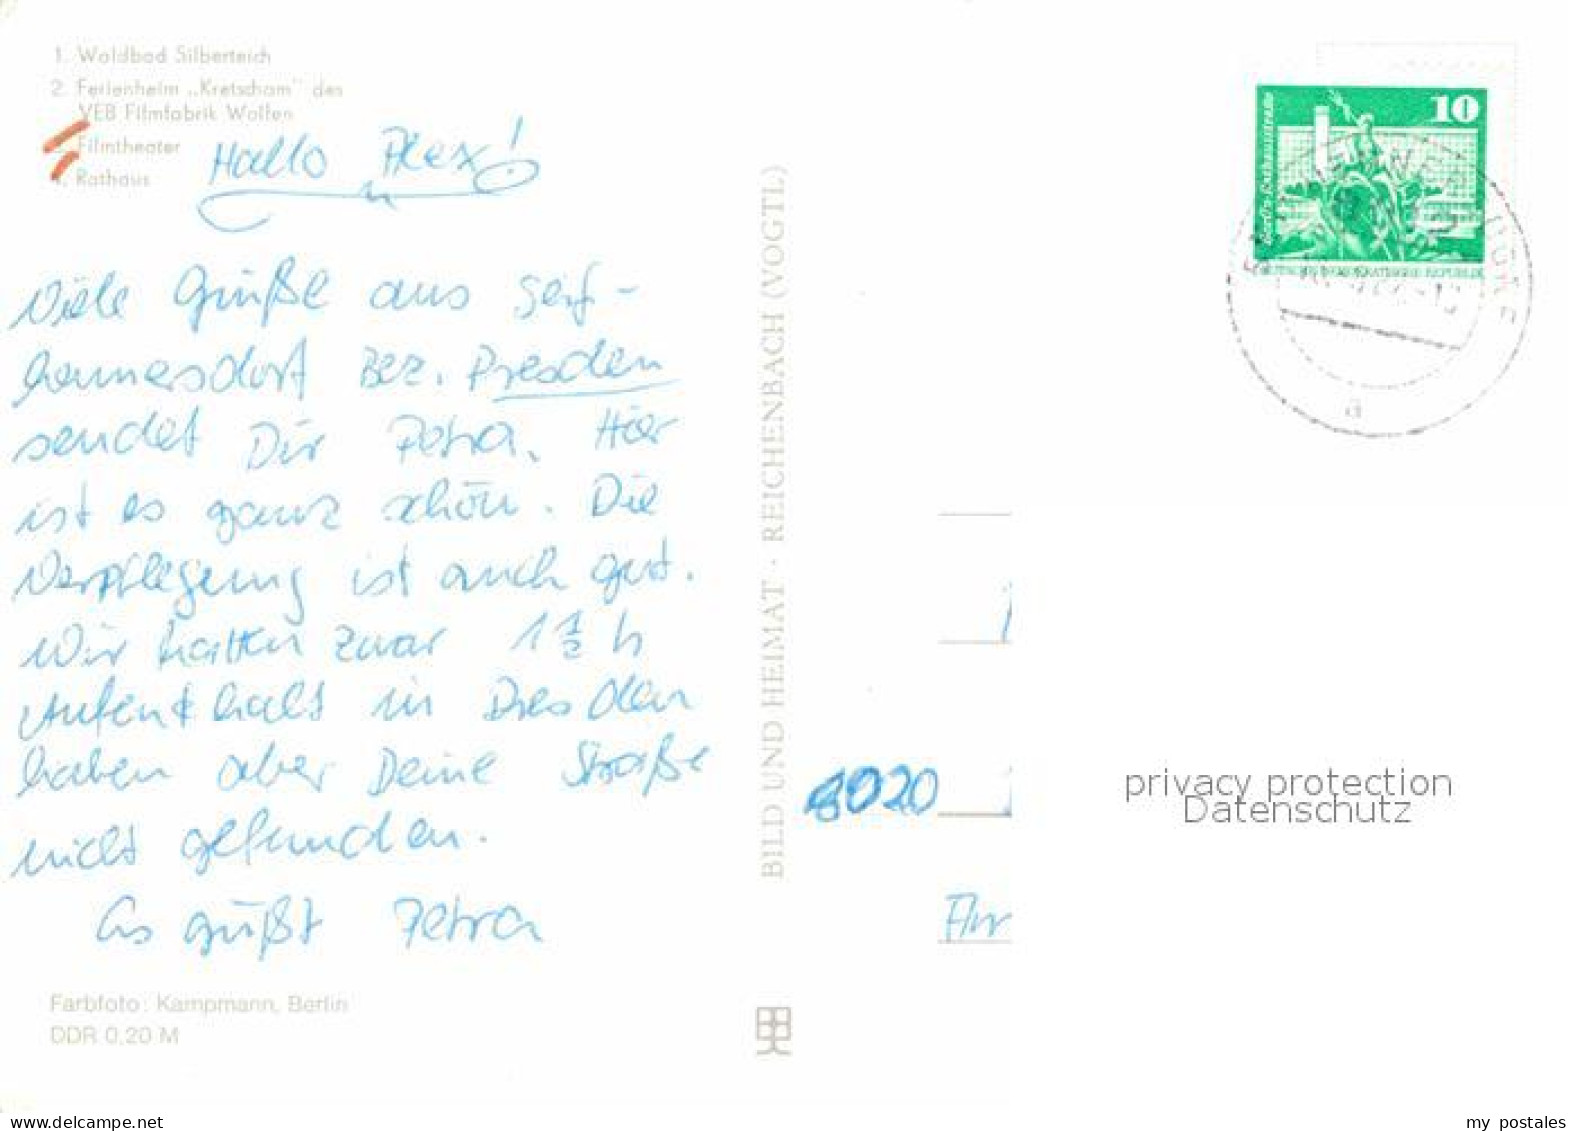 1. Waldbad Silberteich
2. Ferienheim „Kretscham" des
VEB Filmfabrik Wolfen
Filmtheater
4. Rathaus
Hallo Alex!
Viele Grüße aus Seif-
hennersdorf Bez. Dresden
sendet Dir Petra. Hier
ist es ganz schön. Die
Verpflegung ist auch gut.
Wir hatten zwar 1 1/2 h
Aufenthalt in Dresden
haben aber Deine Straße
nicht gefunden.
Es grüßt Petra
Farbfoto: Kampmann, Berlin
DDR 0,20 M
BILD UND HEIMAT · REICHENBACH (VOGTL)
10
Berlin-Rathausstraße
DEUTSCHE DEMOKRATISCHE REPUBLIK
a
8020
privacy protection
Datenschutz
www.delcampe.net
my postales